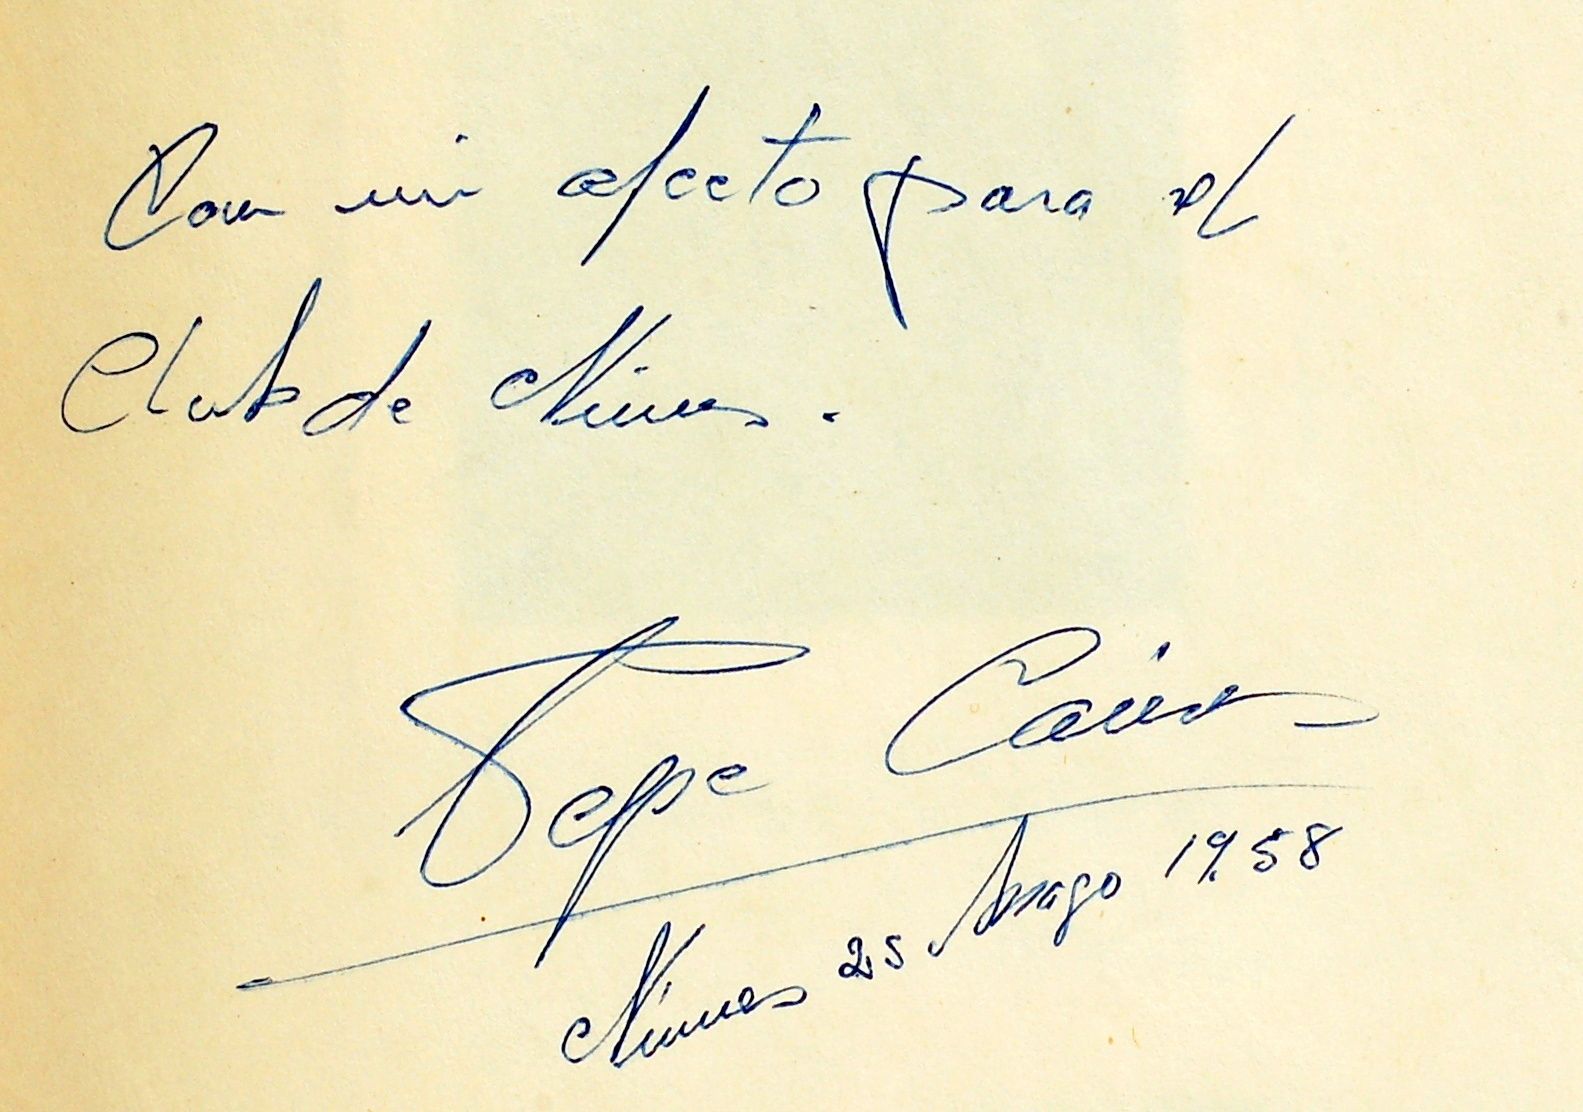 Con mi afecto para el
Club de Nimes.
Pepe Cáceres
Nimes 25 Mayo 1958